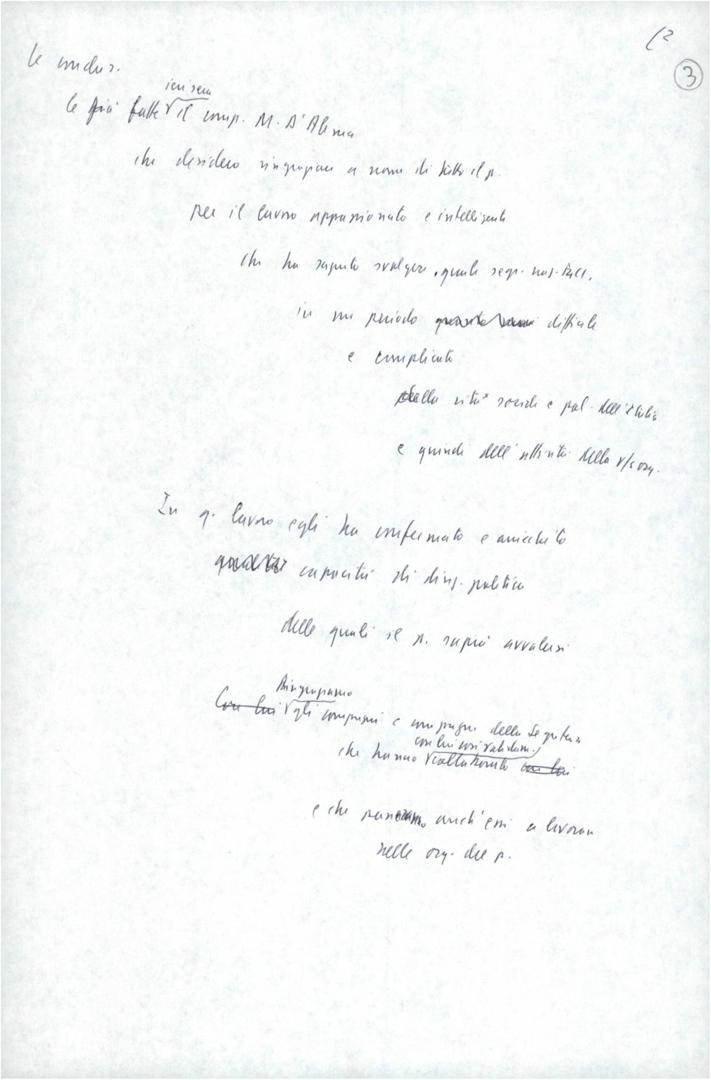 (2
3
le conclus.
ieri sera
le già fatte il comp. M. D'Alema
che desidero ringraziare a nome di tutto il p.
per il lavoro appassionato e intelligente
che ha saputo svolgere, quale segr. naz.
in un periodo difficile
e complicato
della vita sociale e pol. dell'Italia
e quindi dell'attività della
In q. lavoro egli ha confermato e arricchito
capacità di dirig. politico
delle quali il p. saprà avvalersi
Ringraziamo
Con lui gli compagni e compagne della Segreteria
con lui così validam.
che hanno collaborato con lui
e che anch'essi a lavorare
nelle org. del p.